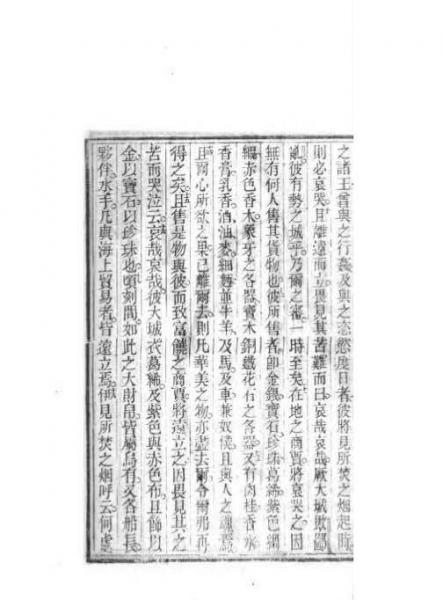 之諸王曾與之行姦及與之戀慾度日者彼將見所焚之烟起時
則必哀哭且離遠而立畏見其苦難而曰哀哉哀哉厥大城敗
彼有勢之城乎乃爾之審一時至矣在地之商賈將哀哭之因
無有何人售其貨物也彼所售者卽金銀寶石珍珠葛絺紫色綢
綢赤色香木象牙之各器寶木銅鐵花石之各器又有肉桂香水
香膏乳香酒油麥細麵並牛羊及馬及車兼奴僕且與人之魂焉
且爾心所欲之果已離爾去則凡華美之物亦盡去爾令爾弗再
得之矣且售是物與彼而致富饒之商賈將遠立之因畏見其之
苦而哭泣云哀哉哀哉彼大城衣葛絺及紫色與赤色布且飾以
金以寶石以珍珠也頃刻間如此之大財帛皆屬烏有又各船長
夥伴水手凡與海上貿易者皆遠立焉伊見所焚之烟呼云何處